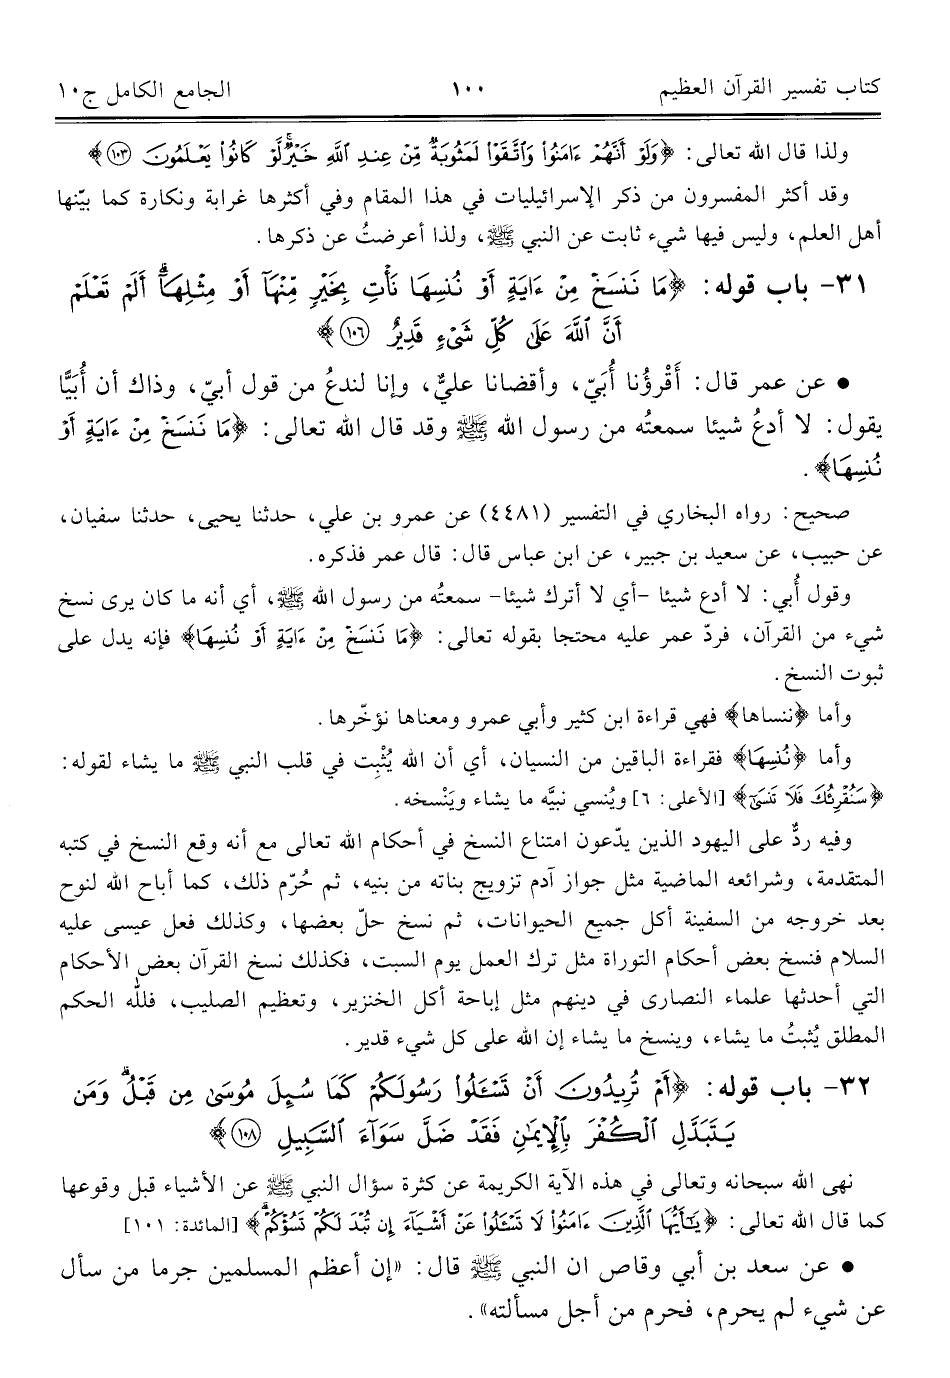 كتاب تفسير القرآن العظيم ١٠٠ الجامع الكامل ج١٠
ولذا قال الله تعالى: ﴿وَلَوْ أَنَّهُمْ ءَامَنُوا۟ وَٱتَّقَوْا۟ لَمَثُوبَةٌ مِّنْ عِندِ ٱللَّهِ خَيْرٌ ۖ لَّوْ كَانُوا۟ يَعْلَمُونَ ١٠٣﴾
وقد أكثر المفسرون من ذكر الإسرائيليات في هذا المقام وفي أكثرها غرابة ونكارة كما بيّنها
أهل العلم، وليس فيها شيء ثابت عن النبي ﷺ، ولذا أعرضتُ عن ذكرها.
٣١- باب قوله: ﴿مَا نَنسَخْ مِنْ ءَايَةٍ أَوْ نُنسِهَا نَأْتِ بِخَيْرٍ مِّنْهَآ أَوْ مِثْلِهَآ ۗ أَلَمْ تَعْلَمْ
أَنَّ ٱللَّهَ عَلَىٰ كُلِّ شَىْءٍ قَدِيرٌ ١٠٦﴾
• عن عمر قال: أَقْرؤُنا أُبَيّ، وأقضانا عليٌّ، وإنا لندعُ من قول أبيّ، وذاك أن أُبَيًّا
يقول: لا أدعُ شيئا سمعتُه من رسول الله ﷺ وقد قال الله تعالى: ﴿مَا نَنسَخْ مِنْ ءَايَةٍ أَوْ
نُنسِهَا﴾.
صحيح: رواه البخاري في التفسير (٤٤٨١) عن عمرو بن علي، حدثنا يحيى، حدثنا سفيان،
عن حبيب، عن سعيد بن جبير، عن ابن عباس قال: قال عمر فذكره.
وقول أُبي: لا أدع شيئا -أي لا أترك شيئا- سمعتُه من رسول الله ﷺ، أي أنه ما كان يرى نسخ
شيء من القرآن، فردّ عمر عليه محتجا بقوله تعالى: ﴿مَا نَنسَخْ مِنْ ءَايَةٍ أَوْ نُنسِهَا﴾ فإنه يدل على
ثبوت النسخ.
وأما ﴿ننساها﴾ فهي قراءة ابن كثير وأبي عمرو ومعناها نؤخّرها.
وأما ﴿نُنسِهَا﴾ فقراءة الباقين من النسيان، أي أن الله يُثْبِت في قلب النبي ﷺ ما يشاء لقوله:
﴿سَنُقْرِئُكَ فَلَا تَنسَىٰٓ﴾ [الأعلى: ٦] ويُنسي نبيَّه ما يشاء ويَنْسخه.
وفيه ردٌّ على اليهود الذين يدّعون امتناع النسخ في أحكام الله تعالى مع أنه وقع النسخ في كتبه
المتقدمة، وشرائعه الماضية مثل جواز آدم تزويج بناته من بنيه، ثم حُرّم ذلك، كما أباح الله لنوح
بعد خروجه من السفينة أكل جميع الحيوانات، ثم نسخ حلّ بعضها، وكذلك فعل عيسى عليه
السلام فنسخ بعض أحكام التوراة مثل ترك العمل يوم السبت، فكذلك نسخ القرآن بعض الأحكام
التي أحدثها علماء النصارى في دينهم مثل إباحة أكل الخنزير، وتعظيم الصليب، فللّه الحكم
المطلق يُثبتُ ما يشاء، وينسخ ما يشاء إن الله على كل شيء قدير.
٣٢- باب قوله: ﴿أَمْ تُرِيدُونَ أَن تَسْـَٔلُوا۟ رَسُولَكُمْ كَمَا سُئِلَ مُوسَىٰ مِن قَبْلُ ۗ وَمَن
يَتَبَدَّلِ ٱلْكُفْرَ بِٱلْإِيمَـٰنِ فَقَدْ ضَلَّ سَوَآءَ ٱلسَّبِيلِ ١٠٨﴾
نهى الله سبحانه وتعالى في هذه الآية الكريمة عن كثرة سؤال النبي ﷺ عن الأشياء قبل وقوعها
كما قال الله تعالى: ﴿يَـٰٓأَيُّهَا ٱلَّذِينَ ءَامَنُوا۟ لَا تَسْـَٔلُوا۟ عَنْ أَشْيَآءَ إِن تُبْدَ لَكُمْ تَسُؤْكُمْ﴾ [المائدة: ١٠١]
• عن سعد بن أبي وقاص ان النبي ﷺ قال: «إن أعظم المسلمين جرما من سأل
عن شيء لم يحرم، فحرم من أجل مسألته».